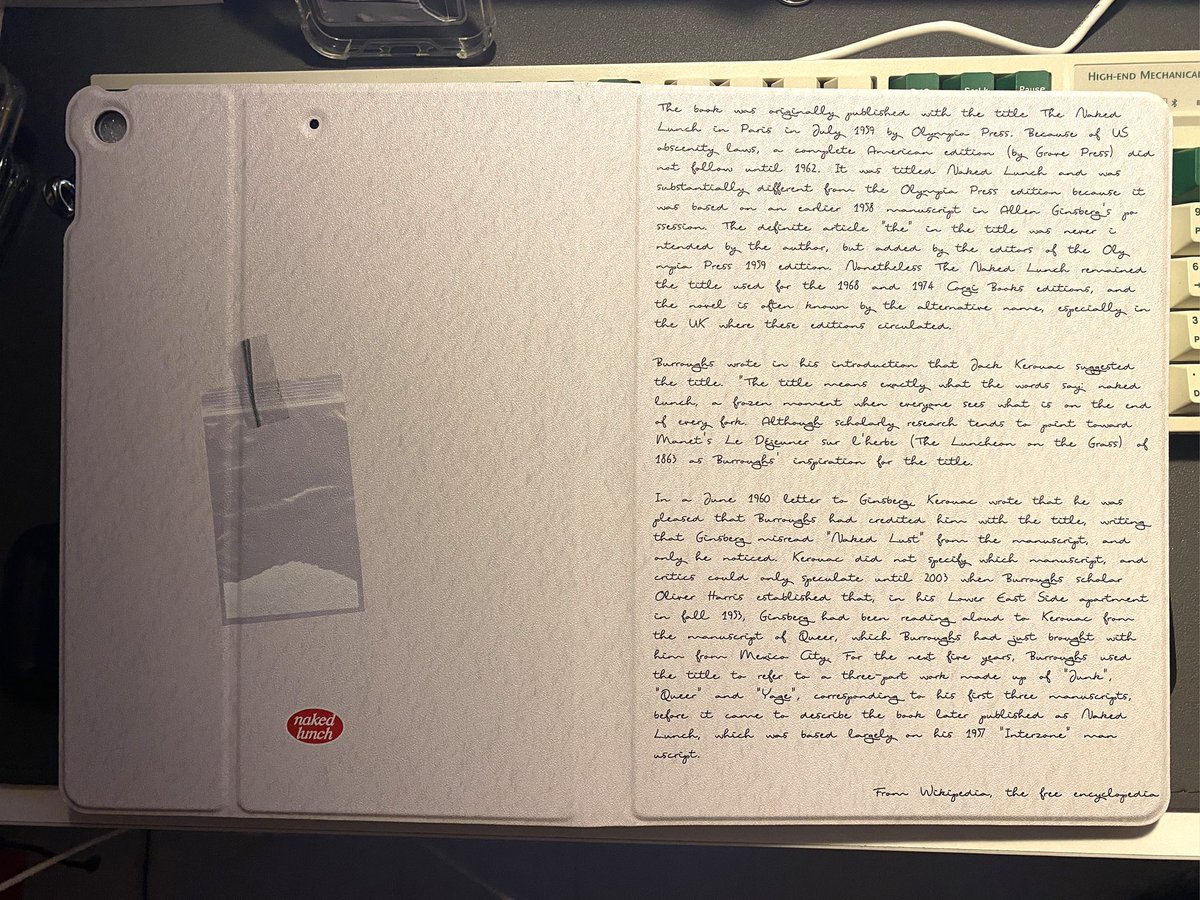 HIGH-END MECHANICAL
Pause
The book was originally published with the title The Naked
Lunch in Paris in July 1959 by Olympia Press. Because of US
obscenity laws, a complete American edition (by Grove Press) did
not follow until 1962. It was titled Naked Lunch and was
substantially different from the Olympia Press edition because it
was based on an earlier 1958 manuscript in Allen Ginsberg's po
ssession. The definite article "the" in the title was never i
ntended by the author, but added by the editors of the Oly
mpia Press 1959 edition. Nonetheless The Naked Lunch remained
the title used for the 1968 and 1974 Corgi Books editions, and
the novel is often known by the alternative name, especially in
the UK where these editions circulated.
Burroughs wrote in his introduction that Jack Kerouac suggested
the title. "The title means exactly what the words say: naked
lunch, a frozen moment when everyone sees what is on the end
of every fork. Although scholarly research tends to point toward
Manet's Le Déjeuner sur l'herbe (The Luncheon on the Grass) of
1863 as Burroughs' inspiration for the title.
In a June 1960 letter to Ginsberg, Kerouac wrote that he was
pleased that Burroughs had credited him with the title, writing
that Ginsberg misread "Naked Lust" from the manuscript, and
only he noticed. Kerouac did not specify which manuscript, and
critics could only speculate until 2003 when Burroughs scholar
Oliver Harris established that, in his Lower East Side apartment
in fall 1953, Ginsberg had been reading aloud to Kerouac from
the manuscript of Queer, which Burroughs had just brought with
him from Mexico City. For the next five years, Burroughs used
the title to refer to a three-part work made up of "Junk",
"Queer" and "Yage", corresponding to his first three manuscripts,
before it came to describe the book later published as Naked
Lunch, which was based largely on his 1957 "Interzone" man
uscript.
From Wikipedia, the free encyclopedia
naked
lunch
9
6
3